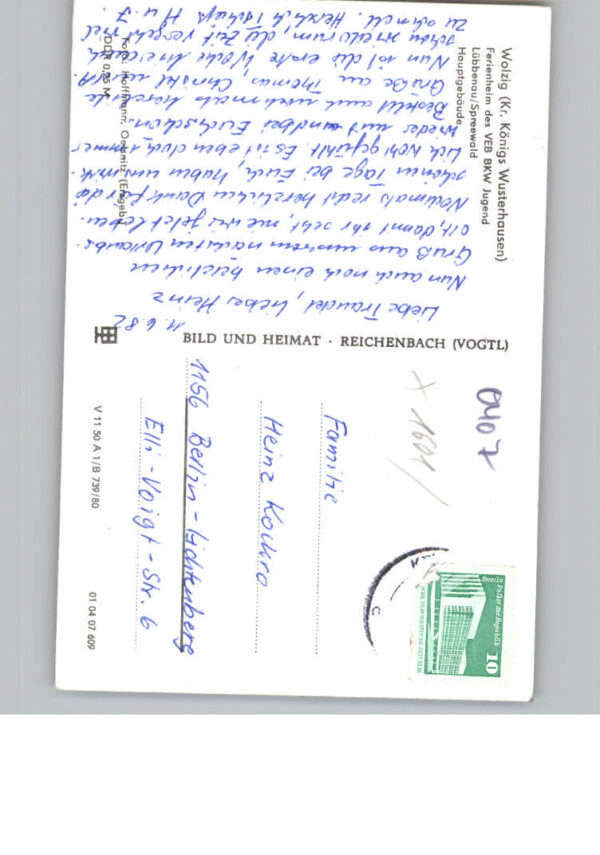 Wolzig (Kr. Königs Wusterhausen)
Ferienheim des VEB BKW Jugend
Lübbenau/Spreewald
Hauptgebäude
11.6.82
Liebe Traudel, lieber Heinz
Nun auch noch einen herzlichen
Gruß aus unserem nächsten Urlaubs-
ort, damit ihr seht, wie wir jetzt leben.
Nochmals recht herzlichen Dank für die
schönen Tage bei Euch, haben uns
wohl gefühlt. Es ist eben doch immer
wieder bei Euch schön.
Bestellt auch nochmals herzliche
Grüße an Thomas, Christel
Nun ist die erste Woche hier auch
schon wieder rum, die Zeit vergeht viel
zu schnell. Herzlich H u. J.
Foto: Hoffmann, Oelsnitz (Erzgeb.)
DDR 0,25 M
BILD UND HEIMAT · REICHENBACH (VOGTL)
V 11 50 A 1/B 739/80
01 04 07 669
0407
x 1601/
Berlin Palast der Republik
10
DEUTSCHE DEMOKRATISCHE REPUBLIK
Familie
Heinz
1156 Berlin-Lichtenberg
Elli-Voigt-Str. 6